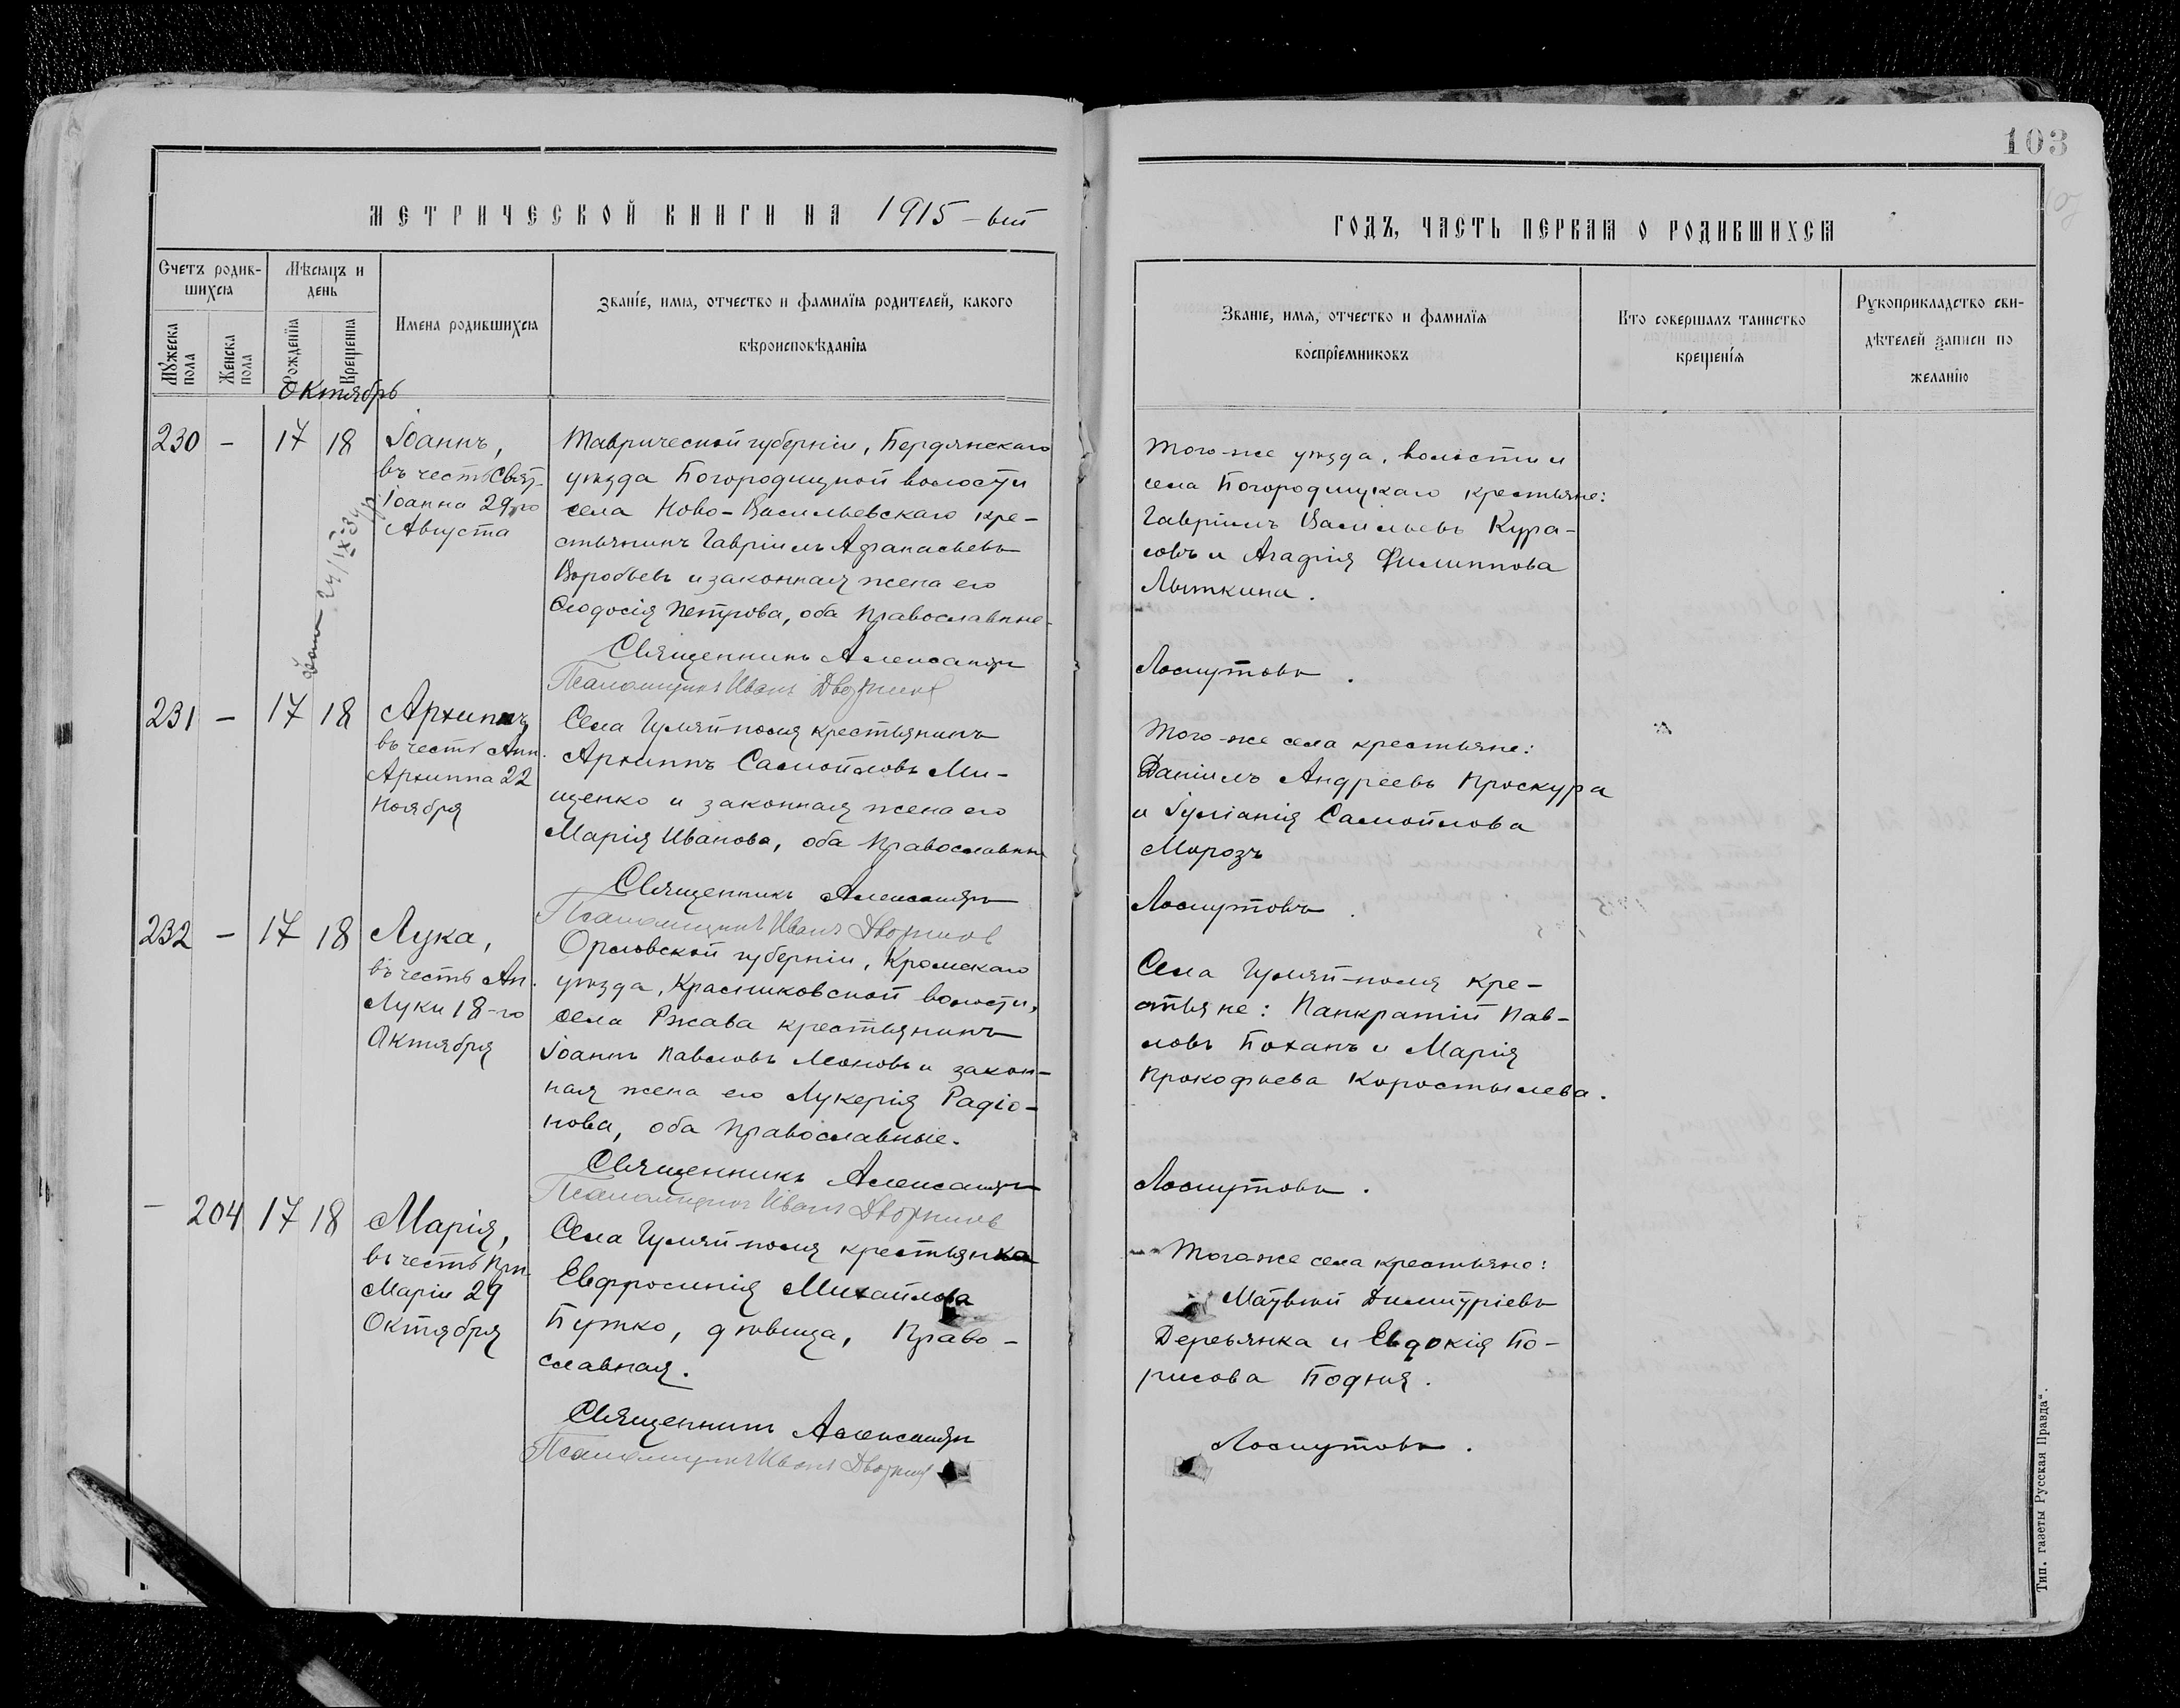 103
МЕТРИЧЕСКОЙ КНИГИ НА 1915-ый
ГОДЪ, ЧАСТЬ ПЕРВАЯ О РОДИВШИХСЯ
Счетъ родив-
шихся
Мѣсяцъ и
день
Имена родившихся
Званіе, имя, отчество и фамилія родителей, какого
вѣроисповѣданія
Мужеска пола
Женска пола
Рожденія
Крещенія
Званіе, имя, отчество и фамилія
воспріемниковъ
Кто совершалъ таинство
крещенія
Рукоприкладство сви-
дѣтелей записи по
желанію
Октябрь
230 - 17 18
Іоаннъ,
въ честь Свят.
Іоанна 29го
Августа
24/IX 34 р.
Таврической губерніи, Бердянскаго
уѣзда Богородицкой волости
села Ново-Васильевскаго кре-
стьянинъ Гавріилъ Афанасьевъ
Воробьевъ и законная жена его
Ѳеодосія Петрова, оба православные.
Священникъ Александръ
Псаломщикъ Иванъ Дворниковъ
Того-же уѣзда, волости и
села Богородицкаго крестьяне:
Гавріилъ Васильевъ Кура-
совъ и Агафія Филиппова
Лыткина.
Лоскутовъ.
231 - 17 18
Архиппъ
въ честь Апп.
Архиппа 22
Ноября
Села Гуляй-поля крестьянинъ
Архиппъ Самойловъ Ми-
щенко и законная жена его
Марія Иванова, оба православные
Священникъ Александръ
Псаломщикъ Иванъ Дворниковъ
Того-же села крестьяне:
Даніилъ Андреевъ Проскура
и Іуліанія Самойлова
Морозъ
Лоскутовъ.
232 - 17 18
Лука,
въ честь Ап.
Луки 18-го
Октября
Орловской губерніи, Кромскаго
уѣзда, Красниковской волости,
села Ржава крестьянинъ
Іоаннъ Павловъ Леоновъ и закон-
ная жена его Лукерія Радіо-
нова, оба православные.
Священникъ Александръ
Псаломщикъ Иванъ Дворниковъ
Села Гуляй-поля кре-
стьяне: Панкратій Пав-
ловъ Боханъ и Марія
Прокофьева Коростылева.
Лоскутовъ.
- 204 17 18
Марія,
въ честь Прп.
Маріи 29
Октября
Села Гуляй-поля крестьянка
Евфросинія Михайлова
Бутко, дѣвица, право-
славная.
Священникъ Александръ
Псаломщикъ Иванъ Дворниковъ
Того-же села крестьяне:
Матвѣй Димитріевъ
Деревянка и Евдокія Бо-
рисова Бодня.
Лоскутовъ.
Тип. газеты Русская Правда".